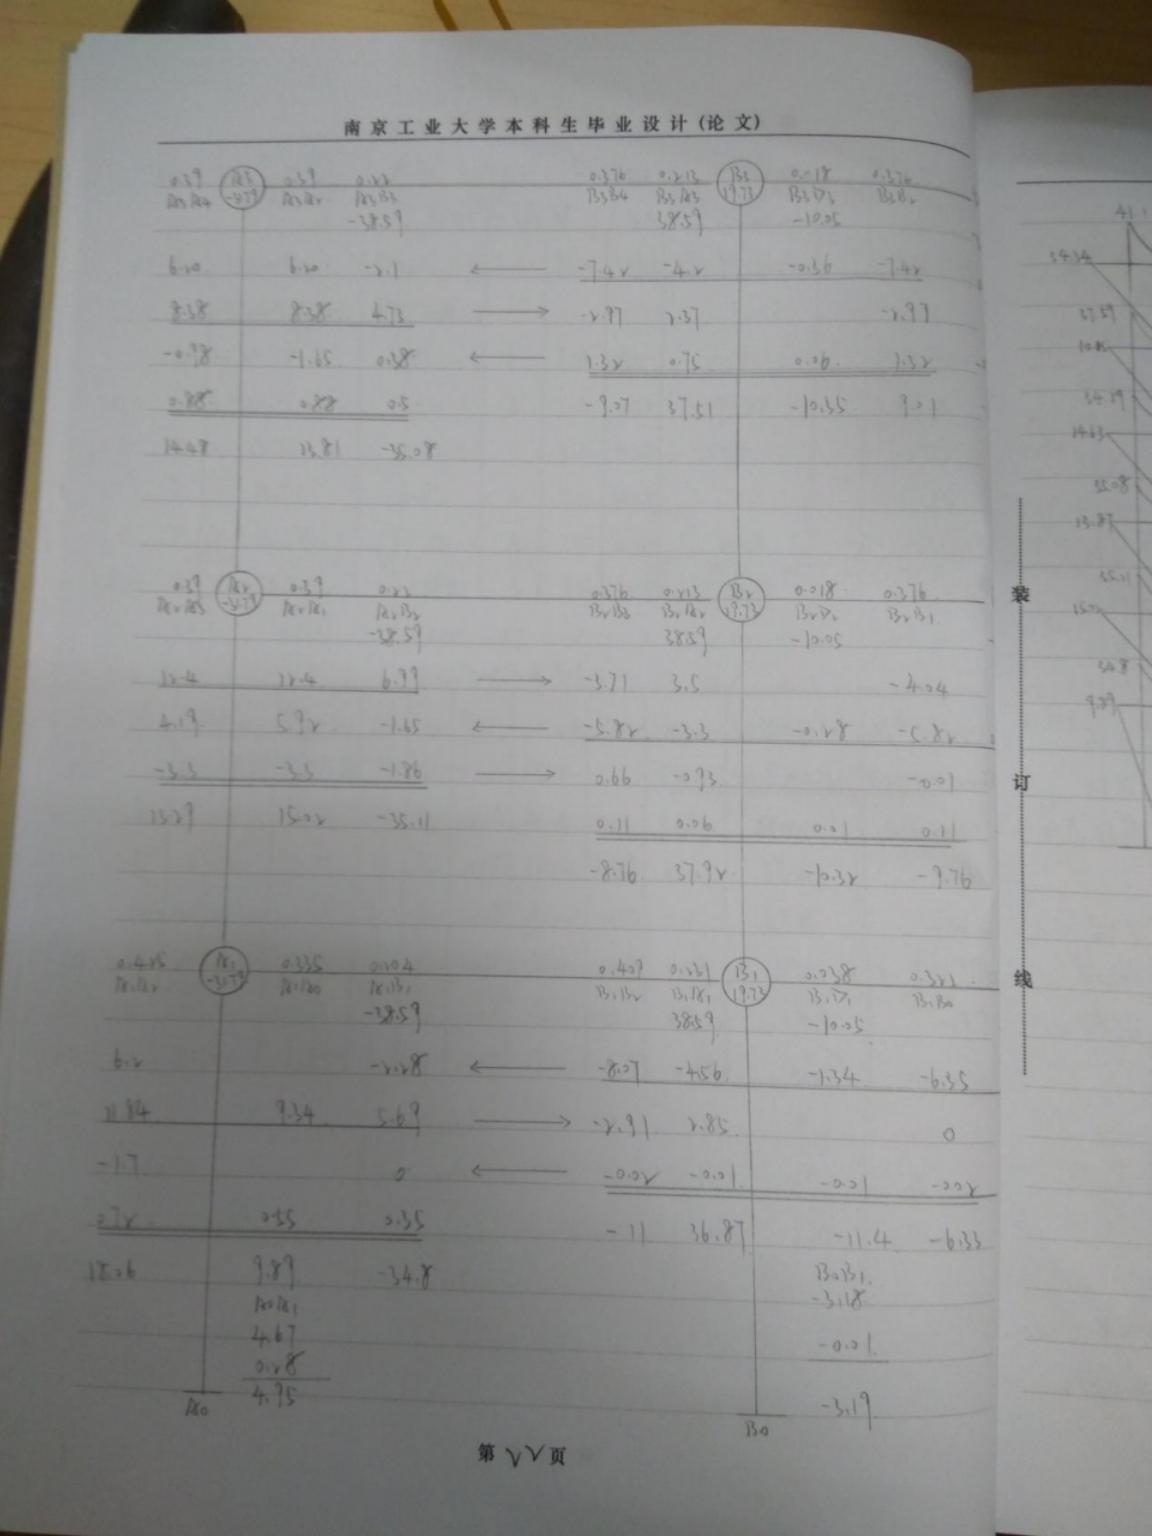 南京工业大学本科生毕业设计(论文)
0.39 A3 0.39 0.22 0.376 0.213 B3 0.018 0.376
A3A4 A3A2 A3B3 B3B4 B3A3 19.73 B3D3 B3B2
-38.59 38.59 -10.05
6.20 6.20 -2.1 ← -7.42 -4.2 -0.36 -7.42
8.38 8.38 4.73 → -2.97 2.37 -2.99
-0.98 -1.65 0.38 ← 1.32 0.75 0.06 1.32
0.88 0.88 0.5 -9.07 37.51 -10.35 9.01
14.48 13.81 -35.08
0.39 A2 0.39 0.22 0.376 0.213 B2 0.018 0.376
A2A3 A2A1 A2B2 B2B3 B2A2 19.73 B2D2 B2B1
-38.59 38.59 -10.05
12.4 12.4 6.99 → -3.71 3.5 -4.04
4.19 5.92 -1.65 ← -5.82 -3.3 -0.28 -5.82
-3.3 -3.3 -1.86 → 0.66 -0.93 -0.01
13.29 15.02 -35.11 0.11 0.06 0.01 0.11
-8.76 37.92 -10.32 -9.76
A1 0.335 0.204 0.409 0.231 B1 0.038 0.321
A1A2 A1A0 A1B1 B1B2 B1A1 19.73 B1D1 B1B0
-38.59 38.59 -10.05
6.2 -2.28 ← -8.07 -4.56 -1.34 -6.35
11.84 9.34 5.69 → -2.91 2.85 0
-1.7 0 ← -0.02 -0.01 -0.01 -0.02
0.72 0.55 0.35 -11 36.87 -11.4 -6.33
18.06 9.89 -34.8 B0B1
A0A1 -3.18
4.67 -0.01
0.28
4.95 -3.19
A0 B0
第 22 页
装
订
线
41.1
34.34
37.59
34.29
14.63
35.08
13.87
35.11
15.02
34.8
9.89